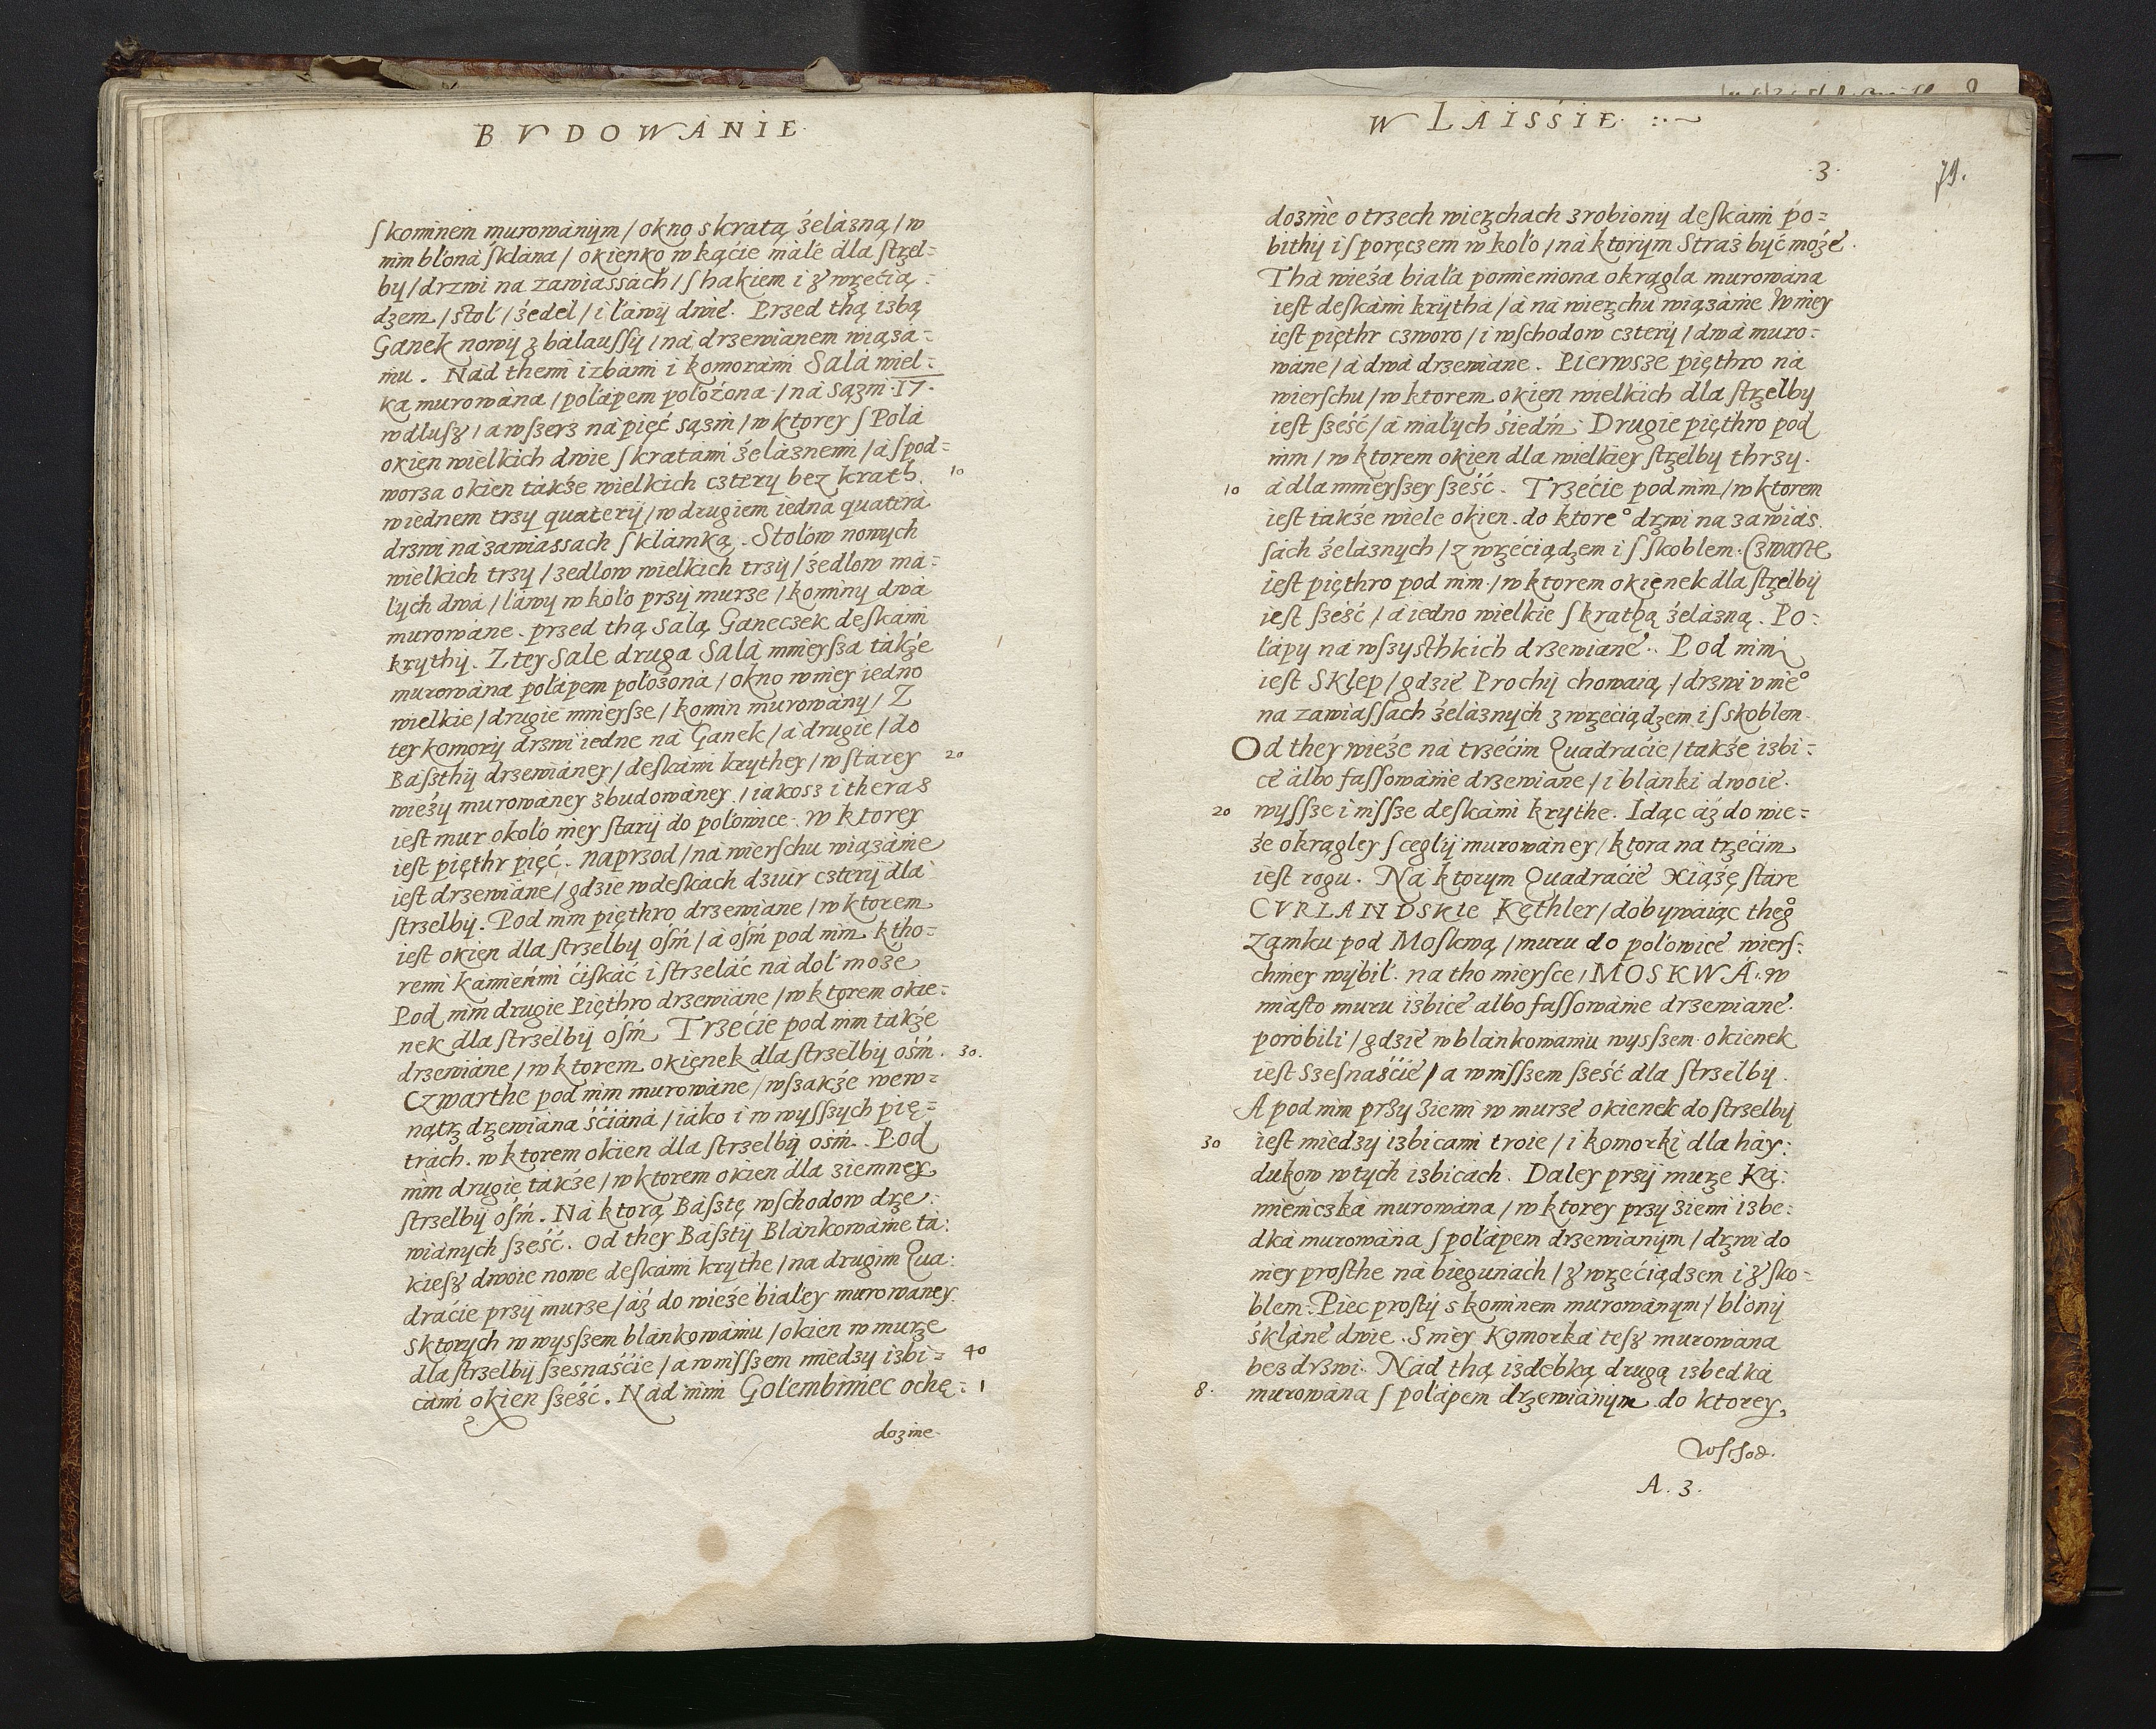 BVDOWANIE
ſkominem murowánÿm / okno s kratą żelázną / w
nim błoná ſklána / okienko w kąćie máłe dla ſtrzel-
by / drzwi na zawiassách / ſ hakiem i z wrzećią-
dzem / stoł / żedel / i łáwÿ dwie. Przed thą izbą
Ganek nowÿ z báláuſſÿ / ná drzewianem wiąza-
niu. Nád themi izbámi i komorámi Sálá wiel-
ka murowána / połápem położona / ná sązni 17.
wdłuſz / a wſzerz ná pięć sązni / w ktorey ſ Polá
okien wielkich dwie ſ kratámi żeláznemi / á ſ pod-
worza okien tákże wielkich cztery bez krath. 10
w iednem trzy quaterÿ / w drugiem iedná quaterá
drzwi ná zawiassach ſ klámką. Stołow nowych
wielkich trzy / zedlow wielkich trzÿ / żedlow má-
łych dwá / łáwy w koło przy murze / kominy dwá
murowáne. przed thą Salą Ganeczek deſkámi
krythÿ. Z tey Sale druga Sálá mnieyſza tákże
murowána połápem położoná / okno w niey iedno
wielkie / drugie mnieyſze / komin murowány / Z
tey komorÿ drzwi iedne ná Ganek / á drugie / do
Baſzthÿ drzewiáney / deſkámi krythey / w ſtárey 20
wieży murowáney zbudowáney / iákosz i theraz
ieſt mur około niey ſtarÿ do połowice. w ktorey
ieſt pięthr pięć. naprzod / ná wierſchu wiązánie
ieſt drzewiáne / gdzie w deſkách dziur czterÿ dlá
ſtrzelby. Pod nim pięthro drzewiáne / w ktorem
ieſt okien dla ſtrzelby ośḿ / á ośḿ pod nim ktho-
remi kámieńmi ćiſkáć i ſtrzeláć ná doł może
Pod nim drugie Pięthro drzewiáne / w ktorem okie-
nek dla ſtrzelbÿ ośḿ Trzećie pod nim tákże
drzewiáne / w ktorem okięnek dla ſtrzelby ośḿ. 30.
Czwarthe pod nim murowáne / wſzákże wew-
nątrz drzewiána śćiáná / iáko i w wyſſzych pię-
trách. w ktorem okien dla ſtrzelbÿ ośḿ. Pod
nim drugie tákże / w ktorem okien dla ziemney
ſtrzelbÿ ośḿ. Ná ktorą Báſztę wſchodow drze-
wiánych ſześć. Od they Baſztÿ Blánkowánie tá-
kieſz dwoie nowe deſkámi krythe / na drugim Qua-
draćie przÿ murze / áż do wieże białey murowaney
s ktorych w wysſzem blánkowániu / okien w murze
dla ſtrzelbÿ ſzesnaśćie / a w niſſzem miedzy izbi- 40
cámi okien ſześć. Nád nimi Gołembiniec ochę- 1
doznie.
W LAISSIE
3.
79.
doznie o trzech wierzchach zrobionÿ deſkámi po-
bithÿ i ſ poręczem w koło / ná ktorÿm Straż być może.
Thá wieża biała pomieniona okrągla murowána
ieſt deſkámi krÿthá / á ná wierzchu wiązánie W niey
ieſt pięthr czworo / i wſchodow czterÿ / dwá muro-
wáne / á dwá drzewiáne. Pierwsze pięthro ná
wierſchu / w ktorem okien wielkich dla ſtrzelby
ieſt ſześć / á máłych śiedḿ. Drugie pięthro pod
nim / w ktorem okien dla wielkiey ſtrzelby thrzy.
10 á dla mnieyſzey ſześć. Trzećie pod nim / w ktorem
ieſt tákże wiele okien. do ktore° drzwi na zawias
ſách żeláznych / z wrzećiądzem i ſ ſkoblem. Czwarte
ieſt pięthro pod nim / w ktorem okięnek dla ſtrzelbÿ
ieſt ſześć / á iedno wielkie ſ krathą żelázną. Po-
łápy ná wſzysthkich drzewiáné. Pod nimi
ieſt Sklep / gdzié Prochÿ chowáią / drzwi v nie°
na zawiaſſach żeláznych z wrzeciądzem i ſ skoblem.
Od they wieże ná trzećim Quadraćie / tákże izbi-
cé álbo faſſowánie drzewiáne / i blánki dwoie.
20 wyſſze i niſſze deſkámi krythe. Idąc áż do wie-
że okrągley ſ cegły murowáney / ktora na trzećim
ieſt rogu. Ná ktorym Quadraćié Xiążę ſtáre
CVRLANDSKIe Kethler / dobywáiąc theg°
Zamku pod Moſkwą / muru do połowice wierſ-
chniey wybił. na tho mieyſce / MOSKWÁ. w
miaſto muru izbicé albo faſſowánie drzewiané.
porobili / gdzié w blánkowániu wysſzem okienek
ieſt Szeſnaśćié / a w niſſzem ſześć dla ſtrzelbÿ.
A pod nim przy ziemi w murzé okienek do ſtrzelbÿ
30 ieſt miedzy izbicami troie / i komorki dla háy-
dukow w tych izbicách. Daley przÿ murze Ká-
mieniczká murowána / w ktorey przy ziemi izbe-
dká murowána ſ połápem drzewianÿm / drzwi do
niey proſthe ná biegunách / z wrzećiądzem i z ſko-
blem. Piec proſtÿ s kominem murowánym / błonÿ
śkláné dwie. S niey Komorká teſz murowána
bez drzwi. Nád thą izdebką drugą izbedká
8. murowána ſ połápem drzewianÿm do ktorey,
Wſchod.
A. 3.